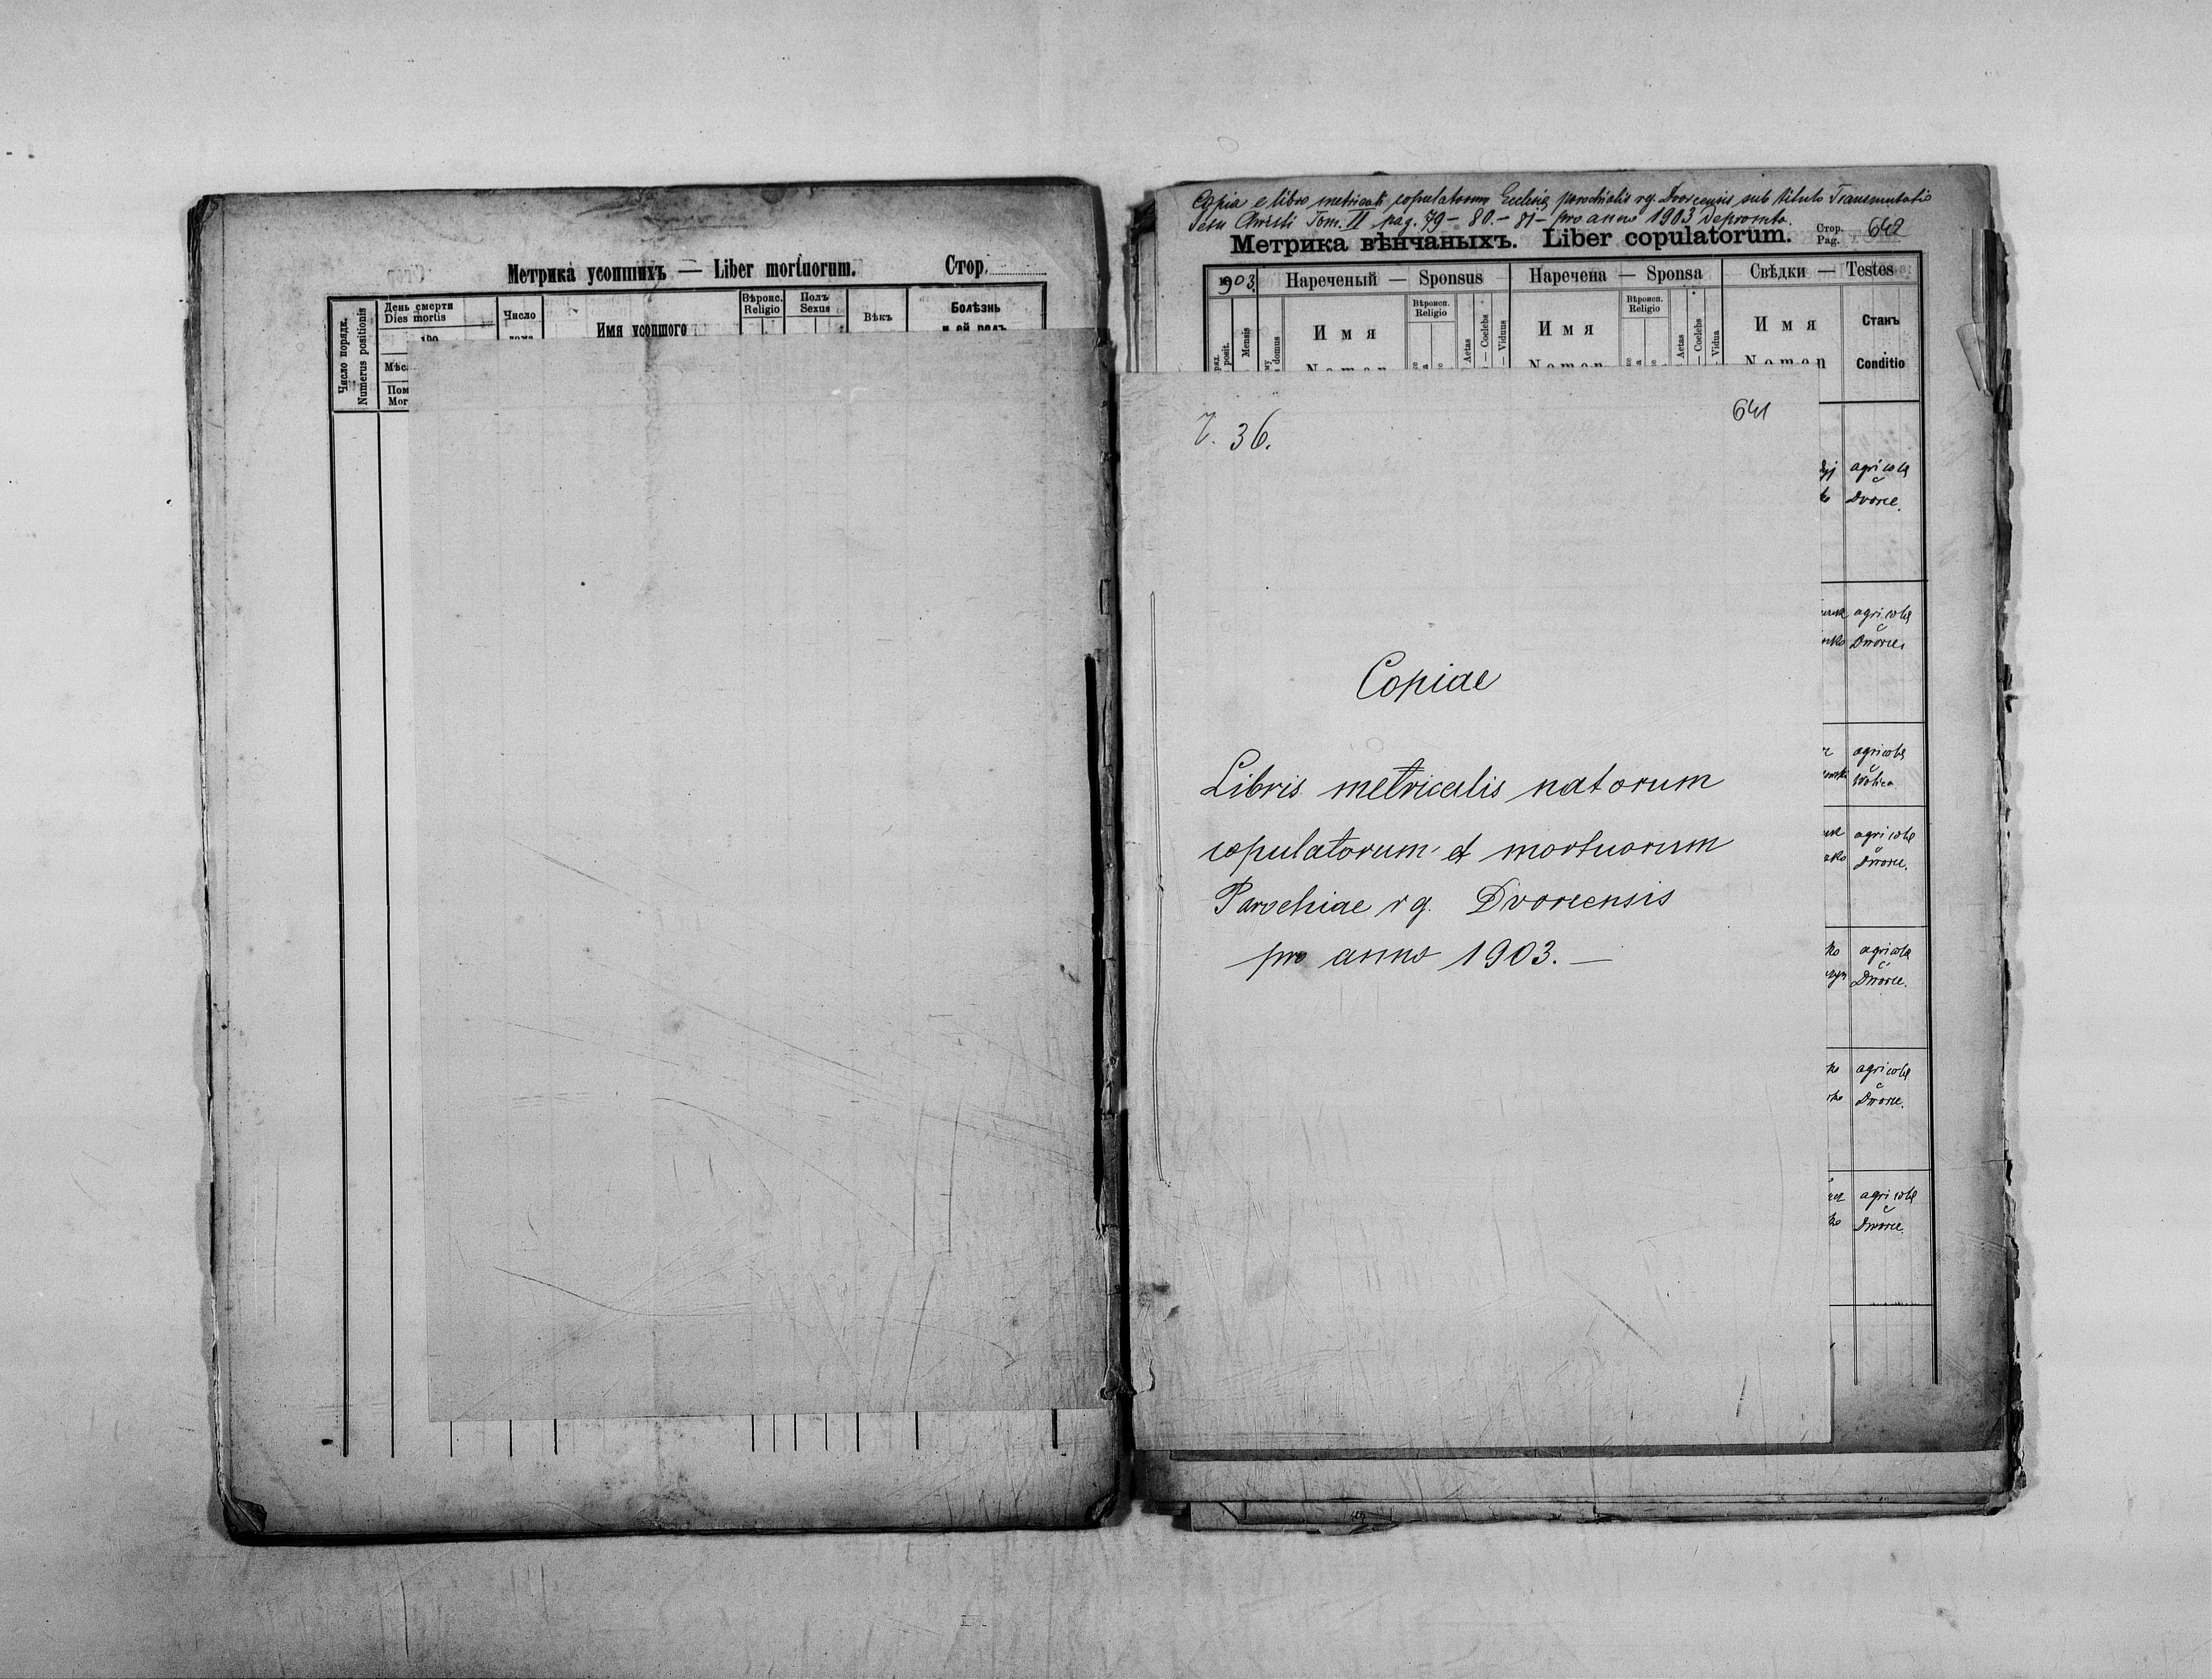 Метрика усопшихъ — Liber mortuorum.
Стор.
Число порядк.
Numerus positionis
День смерти
Dies mortis
190
Число
Имя усопшого
Вѣроис.
Religio
Полъ
Sexus
Вѣкъ
Болѣзнь
Copia e libro metricali copulatorum Ecclesiae parochialis rg. Dvorcensis sub titulo Transmutatio
Jesu Christi Tom. II pag. 79 – 80. – 81 – pro anno 1903 depromta.
Метрика вѣнчаныхъ. Liber copulatorum.
Стор.
Pag. 642
1903.
Нареченый — Sponsus
Наречена — Sponsa
Свѣдки — Testes
Mensis
domus
Имя
Nomen
Вѣроисп.
Religio
Aetas
Coelebs
Viduus
Имя
Nomen
Вѣроисп.
Religio
Aetas
Coelebs
Vidua
Имя
Nomen
Станъ
Conditio
36.
641
Copiae
Libris metricalis natorum
copulatorum et mortuorum
Parochiae rg. Dvorcensis
pro anno 1903. —
agricola
Dvorce.
agricola
Dworce
agricola
Wolica
agricola
Dworce.
agricola
Dworce.
agricola
Dworce.
agricola
Dworce.